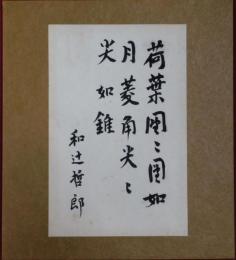 荷葉團〻團如
月菱角尖〻
尖如錐
和辻哲郎